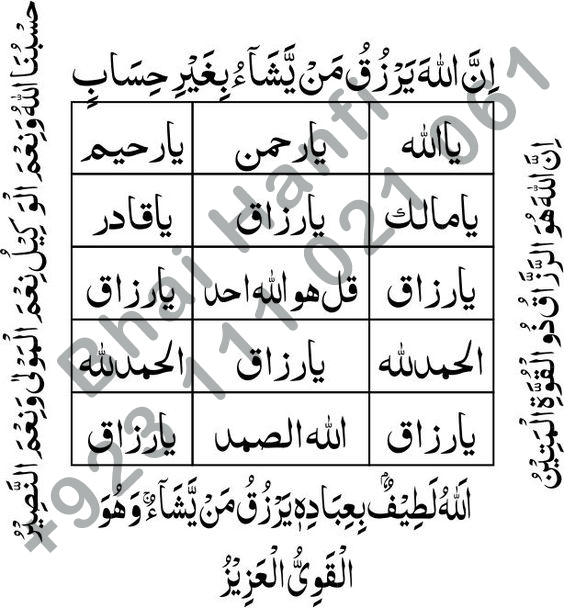 اِنَّ اللّٰهَ يَرْزُقُ مَنْ يَّشَآءُ بِغَيْرِ حِسَابٍ
ياالله يارحمن يارحيم
يامالك يارزاق ياقادر
يارزاق قل هو الله احد يارزاق
الحمدلله يارزاق الحمدلله
يارزاق الله الصمد يارزاق
اَللّٰهُ لَطِيْفٌۢ بِعِبَادِهٖ يَرْزُقُ مَنْ يَّشَآءُ ۚ وَهُوَ
الْقَوِىُّ الْعَزِيْزُ
اِنَّ اللّٰهَ هُوَ الرَّزَّاقُ ذُو الْقُوَّةِ الْمَتِيْنُ
حَسْبُنَا اللّٰهُ وَنِعْمَ الْوَكِيْلُ نِعْمَ الْمَوْلٰى وَنِعْمَ النَّصِيْرُ
Bhai Hanfi
+923 111 021 061